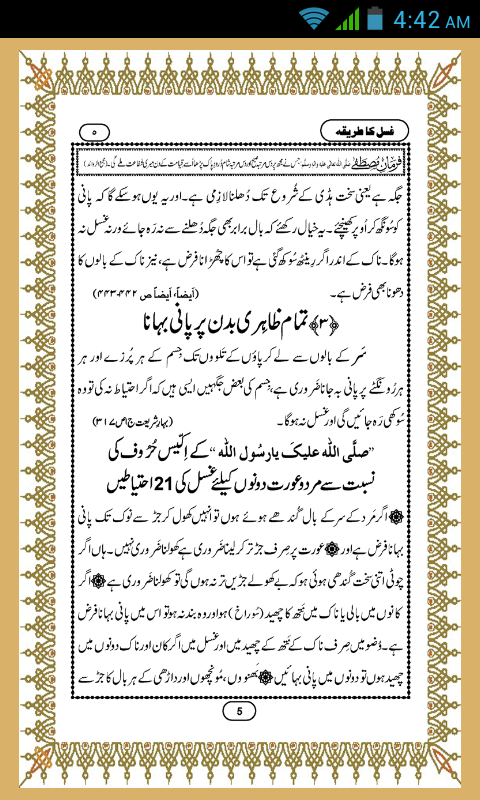 4:42 AM
غسل کا طریقہ
۵
فرمانِ مصطفےٰ صلی اللہ تعالیٰ علیہ واٰلہ وسلم جس نے مجھ پر دس مرتبہ صبح اور دس مرتبہ شام درود پاک پڑھا اُسے قیامت کے دن میری شفاعت ملے گی۔
جگہ ہے یعنی سخت ہڈی کے شُروع تک دُھلنا لازِمی ہے۔ اور یہ یوں ہو سکے گا کہ پانی
کو سُونگھ کر اُوپر کھینچئے۔ یہ خیال رکھئے کہ بال برابر بھی جگہ دُھلنے سے نہ رَہ جائے ورنہ غسل نہ
ہوگا۔ ناک کے اندر اگر رِینٹھ سُوکھ گئی ہے تو اس کا چھُڑانا فرض ہے، نیز ناک کے بالوں کا
دھونا بھی فرض ہے۔ (اَیضاً، اَیضاً ص ۴۴۲-۴۴۳)
﴿۳﴾ تمام ظاہِری بدن پر پانی بہانا
سَر کے بالوں سے لے کر پاؤں کے تلووں تک جِسم کے ہر پُرزے اور ہر
ہر رُونگٹے پر پانی بہ جانا ضَروری ہے، جِسم کی بعض جگہیں ایسی ہیں کہ اگر احتیاط نہ کی تو وہ
سُوکھی رَہ جائیں گی اور غسل نہ ہوگا۔ (بہارِ شریعت ج۱ ص ۳۱۷)
”صلَّی اللہ علیکَ یارسُولَ اللہ“ کے اِکّیس حُرُوف کی
نسبت سے مرد و عورت دونوں کیلئے غسل کی 21 احتیاطیں
اگر مَرد کے سر کے بال گُندھے ہوئے ہوں تو انہیں کھول کر جڑ سے نوک تک پانی
بہانا فرض ہے اور عورت پر صِرف جڑ تر کر لینا ضَروری ہے کھولنا ضَروری نہیں۔ ہاں اگر
چوٹی اتنی سخت گُندھی ہوئی ہو کہ بے کھولے جڑیں تر نہ ہوں گی تو کھولنا ضَروری ہے اگر
کانوں میں بالی یا ناک میں نَتھ کا چھید (سُوراخ) ہو اور وہ بند نہ ہو تو اس میں پانی بہانا فرض
ہے۔ وُضو میں صِرف ناک کے نَتھ کے چھید میں اور غسل میں اگر کان اور ناک دونوں میں
چھید ہوں تو دونوں میں پانی بہائیں بَھنووں، مُونچھوں اور داڑھی کے ہر بال کا جڑ سے
5